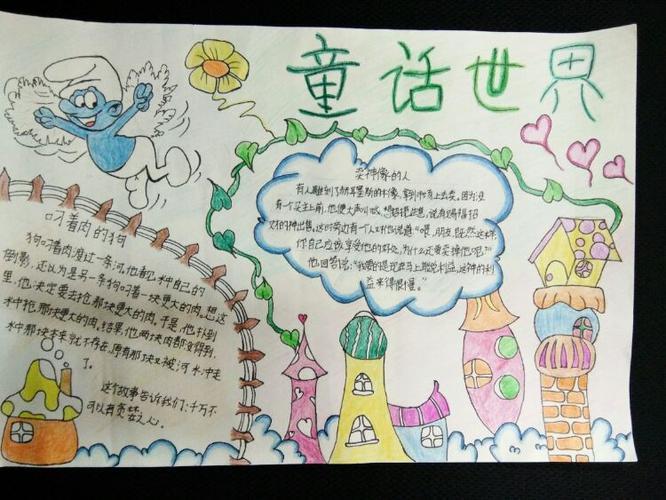 童话世界
卖神像的人
有人雕刻了赫耳墨斯的木像,拿到市场上去卖。因为没
有一个买主上前,他便大声叫喊,想招揽生意,说有赐福招
财的神出售。这时旁边有一个人对他说道:“喂,朋友,既然这样,
你自己应该享受他的好处,为什么还要卖掉他呢?”
他回答说:“我要的是现在马上能兑利益,这神的利
益来得很慢。”
叼着肉的狗
狗叼着肉渡过一条河,他看见水中自己的
倒影,还以为是另一条狗叼着一块更大的肉,想这
里,他决定要去抢那块更大的肉。于是,他扑到
水中抢那块更大的肉。结果,他两块肉都没得到,
水中那块本来就不存在,原有那块又被河水冲走
了。
这个故事告诉我们:千万不
可以有贪婪之心。